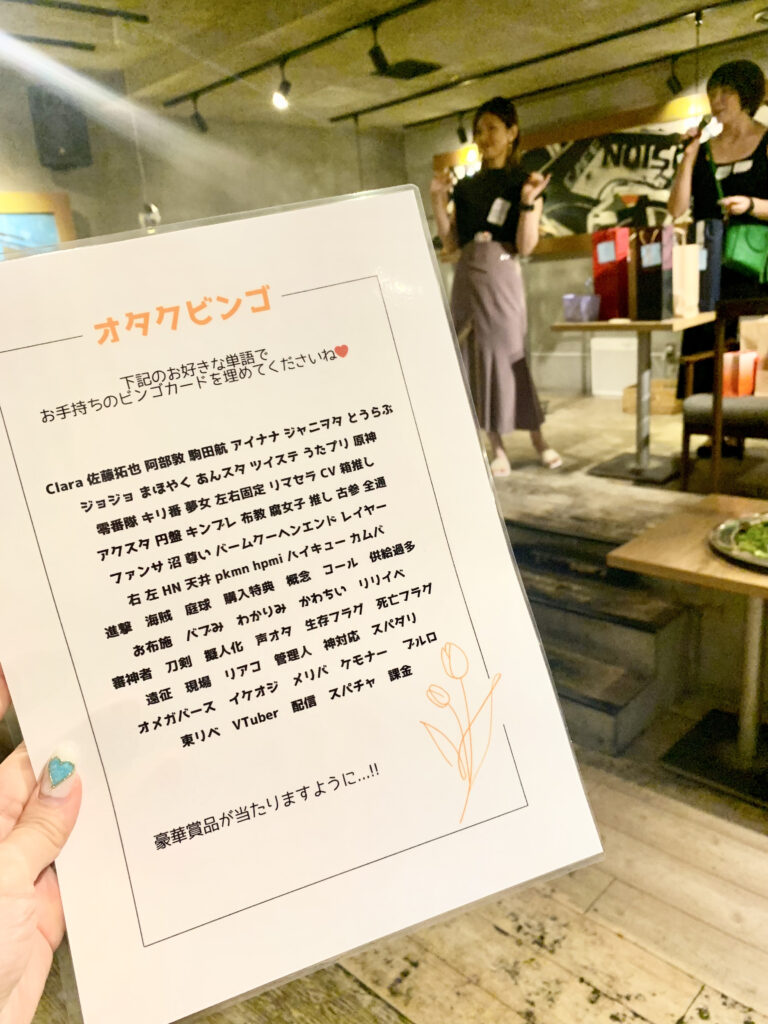 オタクビンゴ
下記のお好きな単語で
お手持ちのビンゴカードを埋めてくださいね❤
Clara 佐藤拓也 阿部敦 駒田航 アイナナ ジャニヲタ とうらぶ
ジョジョ まほやく あんスタ ツイステ うたプリ 原神
零番隊 キリ番 夢女 左右固定 リマセラ CV 箱推し
アクスタ 円盤 キンブレ 布教 腐女子 推し 古参 全通
ファンサ 沼 尊い バームクーヘンエンド レイヤー
右 左 HN 天井 pkmn hpmi ハイキュー カムバ
進撃 海賊 庭球 購入特典 概念 コール 供給過多
お布施 バブみ わかりみ かわちい リリイベ
審神者 刀剣 擬人化 声オタ 生存フラグ 死亡フラグ
遠征 現場 リアコ 管理人 神対応 スパダリ
オメガバース イケオジ メリバ ケモナー ブルロ
東リベ VTuber 配信 スパチャ 課金
豪華賞品が当たりますように...!!
NOISE